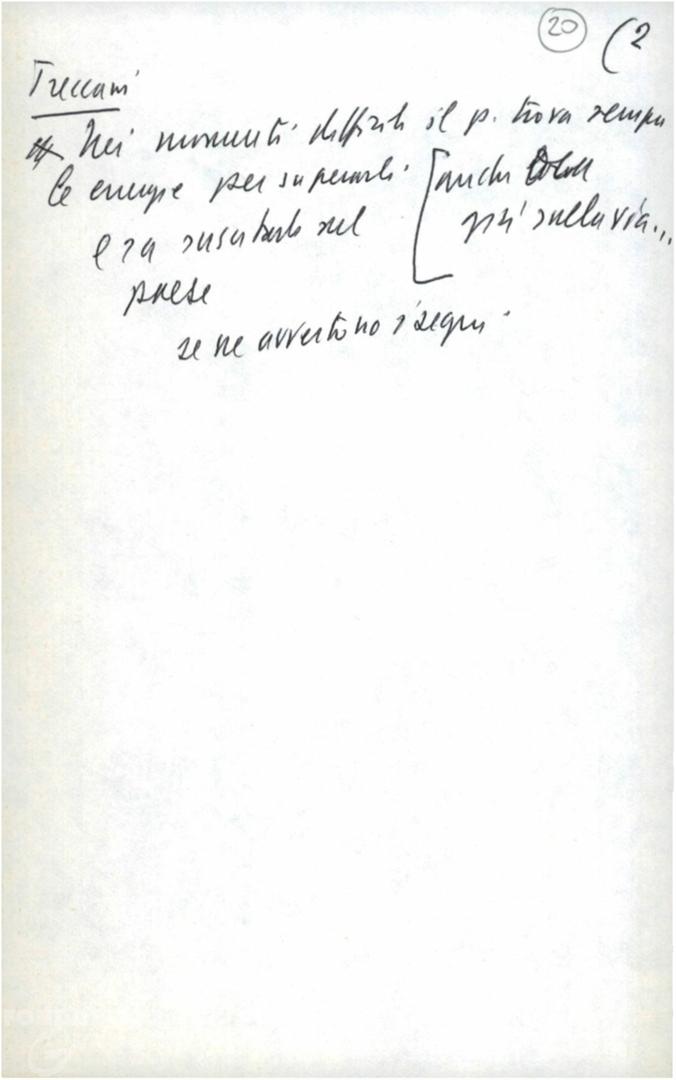 20 (2
Treccani
Nei momenti difficili il p. trova sempre
le energie per superarli. [anche
e sa suscitarle nel più sulla via...
paese
se ne avvertono i segni.